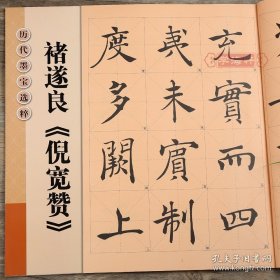 历代墨宝选粹
褚遂良《倪宽赞》
充實而四
夷未賓制
度多闕上
孔夫子旧书网